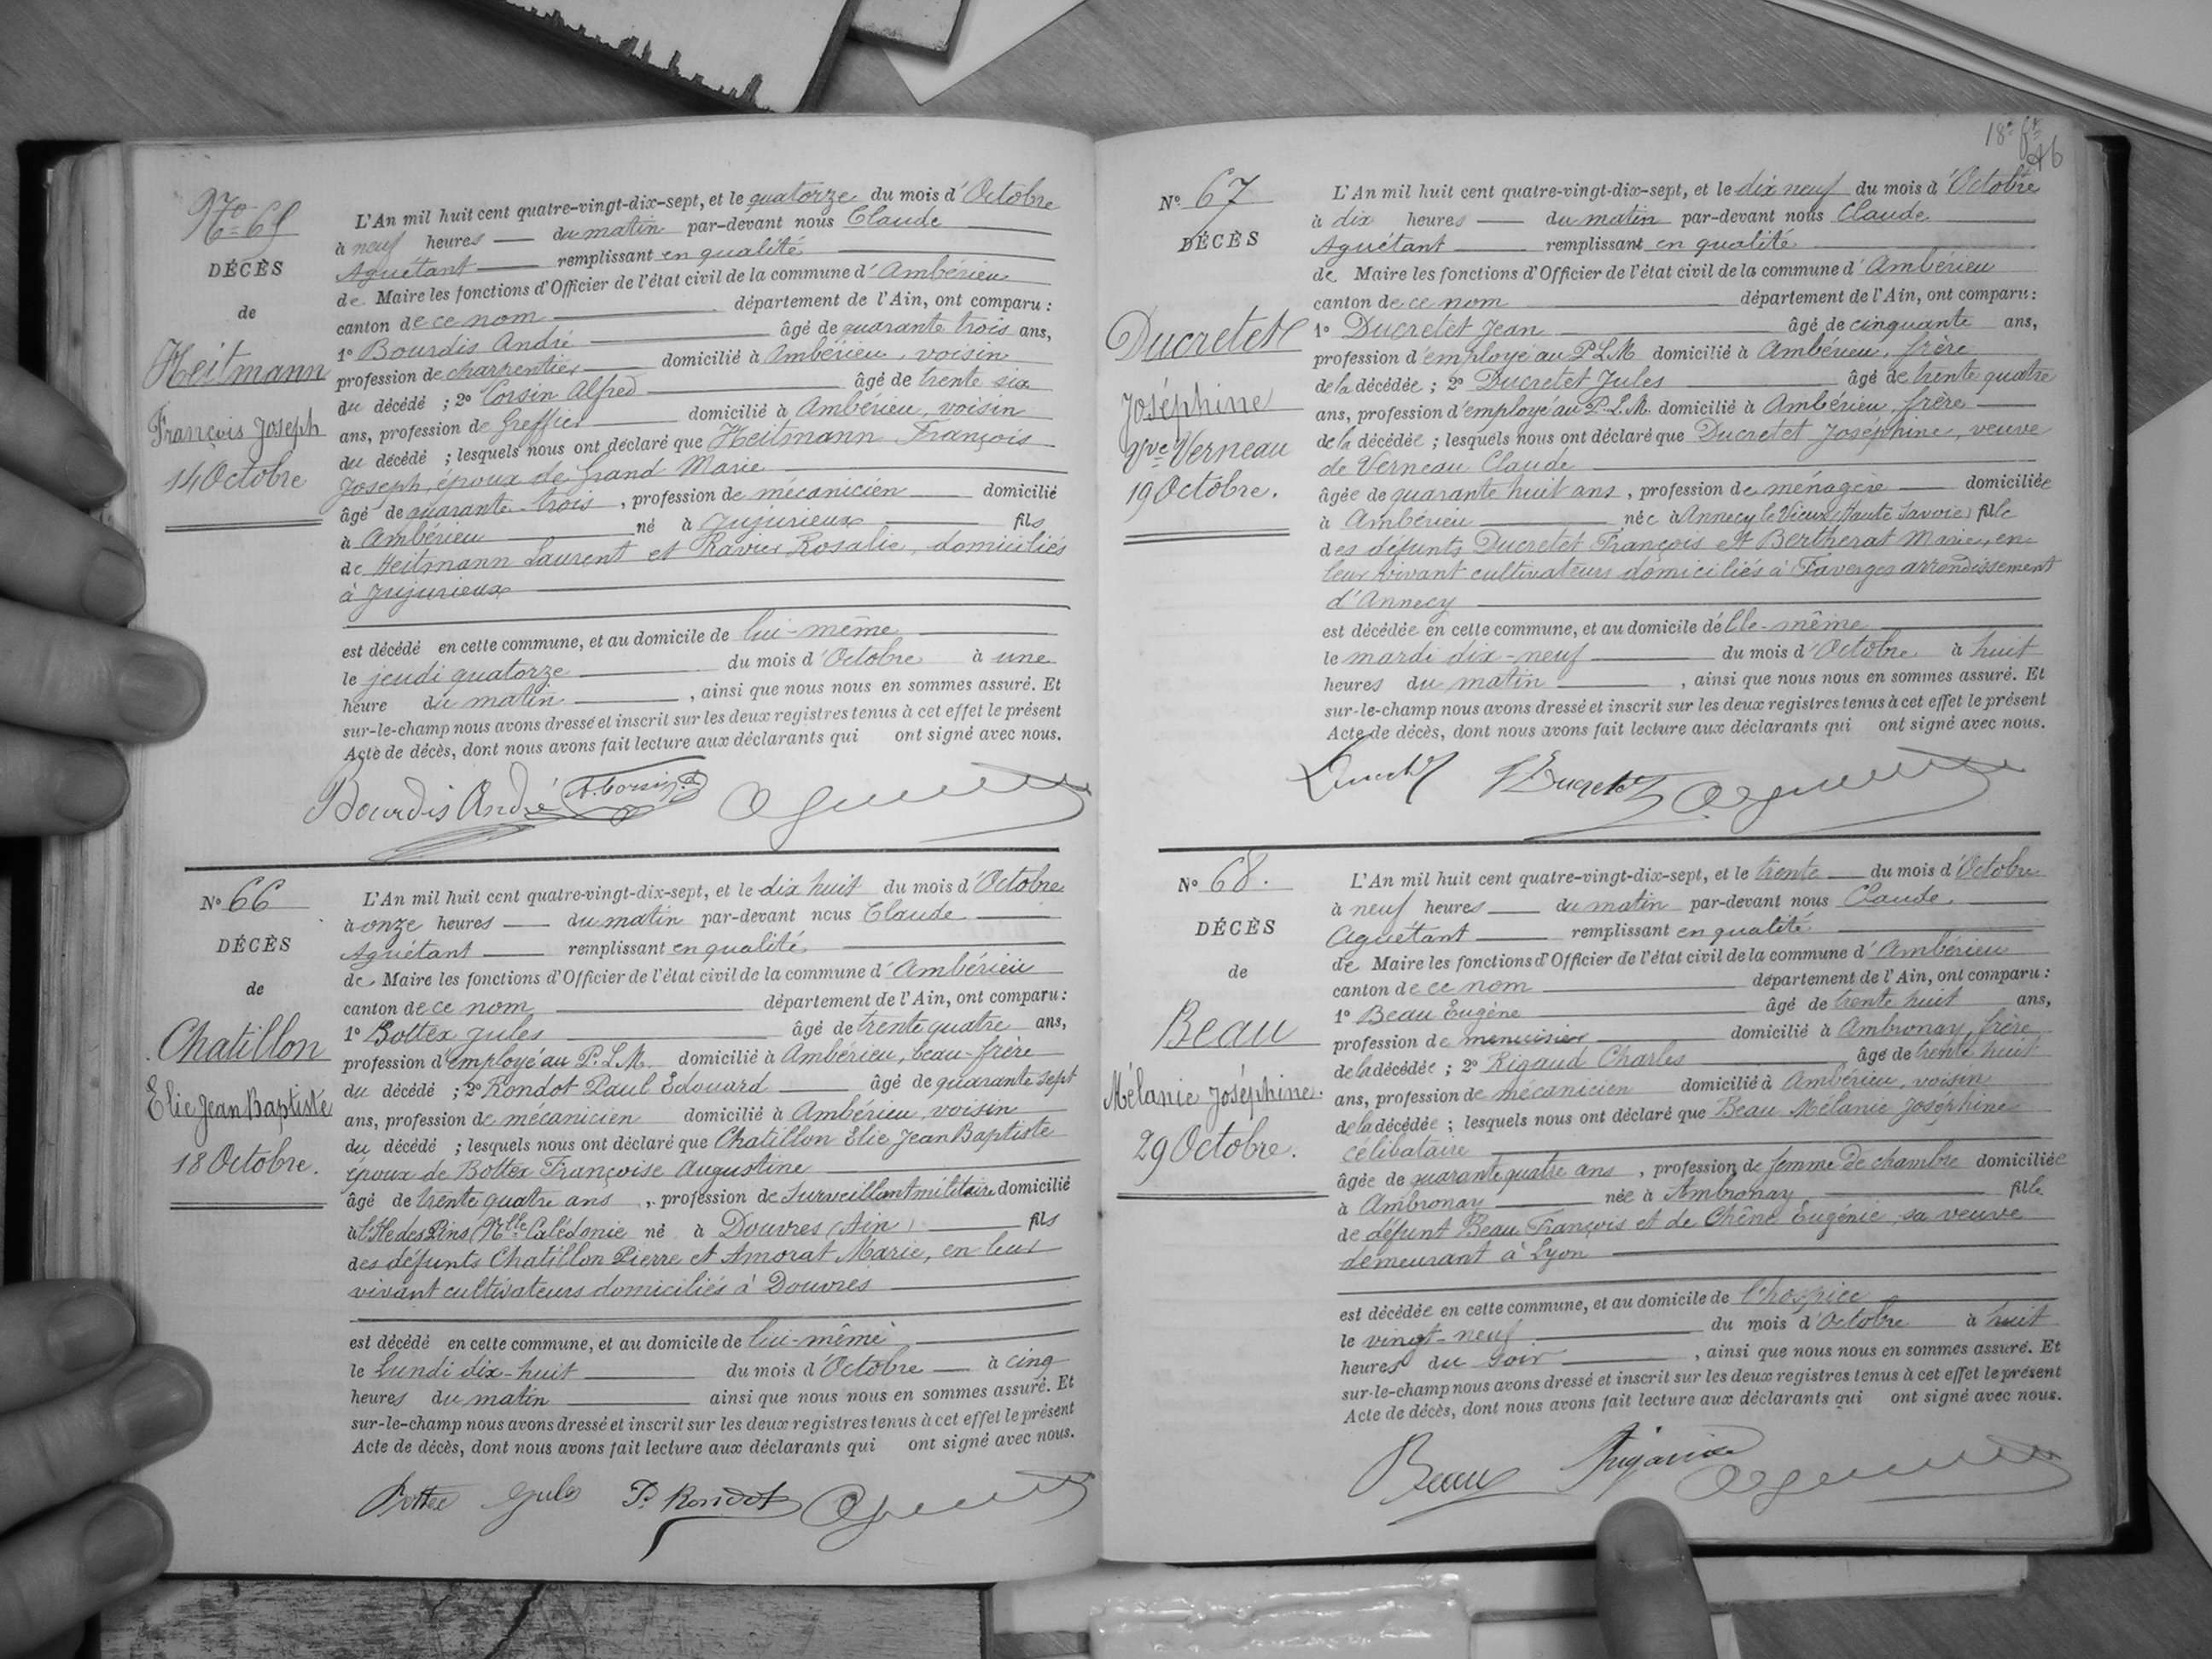 No 65
DÉCÈS
de
Heitmann
François Joseph
14 Octobre
L'An mil huit cent quatre-vingt-dix-sept, et le quatorze du mois d'Octobre
à neuf heures du matin par-devant nous Claude
Aguétant remplissant en qualité
de Maire les fonctions d'Officier de l'état civil de la commune d'Ambérieu
canton de ce nom département de l'Ain, ont comparu :
1° Bourdis André âgé de quarante trois ans,
profession de charpentier domicilié à Ambérieu, voisin
du décédé ; 2° Corsin Alfred âgé de trente six
ans, profession de Greffier domicilié à Ambérieu, voisin
du décédé ; lesquels nous ont déclaré que Heitmann François
Joseph, époux de Grand Marie
âgé de quarante-trois, profession de mécanicien domicilié
à Ambérieu né à Jujurieux fils
de Heitmann Laurent et Ravier Rosalie, domiciliés
à Jujurieux
est décédé en cette commune, et au domicile de lui-même
le jeudi quatorze du mois d'Octobre à une
heure du matin, ainsi que nous nous en sommes assuré. Et
sur-le-champ nous avons dressé et inscrit sur les deux registres tenus à cet effet le présent
Acte de décès, dont nous avons fait lecture aux déclarants qui ont signé avec nous.
Bourdis André A. Corsin
No 66
DÉCÈS
de
Chatillon
Elie Jean Baptiste
18 Octobre.
L'An mil huit cent quatre-vingt-dix-sept, et le dix huit du mois d'Octobre
à onze heures du matin par-devant nous Claude
Aguétant remplissant en qualité
de Maire les fonctions d'Officier de l'état civil de la commune d'Ambérieu
canton de ce nom département de l'Ain, ont comparu :
1° Bottex Jules âgé de trente quatre ans,
profession d'employé au P.L.M. domicilié à Ambérieu, beau-frère
du décédé ; 2° Rondot Paul Edouard âgé de quarante sept
ans, profession de mécanicien domicilié à Ambérieu, voisin
du décédé ; lesquels nous ont déclaré que Chatillon Elie Jean Baptiste
époux de Bottex Françoise Augustine
âgé de trente quatre ans, profession de Surveillant militaire domicilié
à l'Ile des Pins (Nlle Calédonie né à Douvres (Ain) fils
des défunts Chatillon Pierre et Amorat Marie, en leur
vivant cultivateurs domiciliés à Douvres
est décédé en cette commune, et au domicile de lui-même
le Lundi dix-huit du mois d'Octobre à cinq
heures du matin ainsi que nous nous en sommes assuré. Et
sur-le-champ nous avons dressé et inscrit sur les deux registres tenus à cet effet le présent
Acte de décès, dont nous avons fait lecture aux déclarants qui ont signé avec nous.
Bottex Jules P. Rondot
46
No 67
DÉCÈS
Ducretet
Joséphine
Vve Verneau
19 Octobre.
L'An mil huit cent quatre-vingt-dix-sept, et le dix neuf du mois d'Octobre
à dix heures du matin par-devant nous Claude
Aguétant remplissant en qualité
de Maire les fonctions d'Officier de l'état civil de la commune d'Ambérieu
canton de ce nom département de l'Ain, ont comparu :
1° Ducretet Jean âgé de cinquante ans,
profession d'employé au P.L.M domicilié à Ambérieu, frère
de la décédée ; 2° Ducretet Jules âgé de trente quatre
ans, profession d'employé au P.L.M. domicilié à Ambérieu, frère
de la décédée ; lesquels nous ont déclaré que Ducretet Joséphine, veuve
de Verneau Claude
âgée de quarante huit ans, profession de ménagère domiciliée
à Ambérieu née à Annecy le Vieux (Haute Savoie) fille
des défunts Ducretet François et Bertherat Marie, en
leur vivant cultivateurs domiciliés à Faverges arrondissement
d'Annecy
est décédée en cette commune, et au domicile d'elle-même
le mardi dix-neuf du mois d'Octobre à huit
heures du matin, ainsi que nous nous en sommes assuré. Et
sur-le-champ nous avons dressé et inscrit sur les deux registres tenus à cet effet le présent
Acte de décès, dont nous avons fait lecture aux déclarants qui ont signé avec nous.
No 68.
DÉCÈS
de
Beau
Mélanie Joséphine.
29 Octobre.
L'An mil huit cent quatre-vingt-dix-sept, et le trente du mois d'Octobre
à neuf heures du matin par-devant nous Claude
Aguétant remplissant en qualité
de Maire les fonctions d'Officier de l'état civil de la commune d'Ambérieu
canton de ce nom département de l'Ain, ont comparu :
1° Beau Eugène âgé de trente huit ans,
profession de menuisier domicilié à Ambronay, frère
de la décédée ; 2° Rigaud Charles âgé de trente huit
ans, profession de mécanicien domicilié à Ambérieu, voisin
de la décédée ; lesquels nous ont déclaré que Beau Mélanie Joséphine
célibataire
âgée de quarante quatre ans, profession de femme de chambre domiciliée
à Ambronay née à Ambronay fille
de défunt Beau François et de Chêne Eugénie, sa veuve
demeurant à Lyon
est décédée en cette commune, et au domicile de l'hospice
le vingt-neuf du mois d'Octobre à huit
heures du soir, ainsi que nous nous en sommes assuré. Et
sur-le-champ nous avons dressé et inscrit sur les deux registres tenus à cet effet le présent
Acte de décès, dont nous avons fait lecture aux déclarants qui ont signé avec nous.
Beau Rigaud